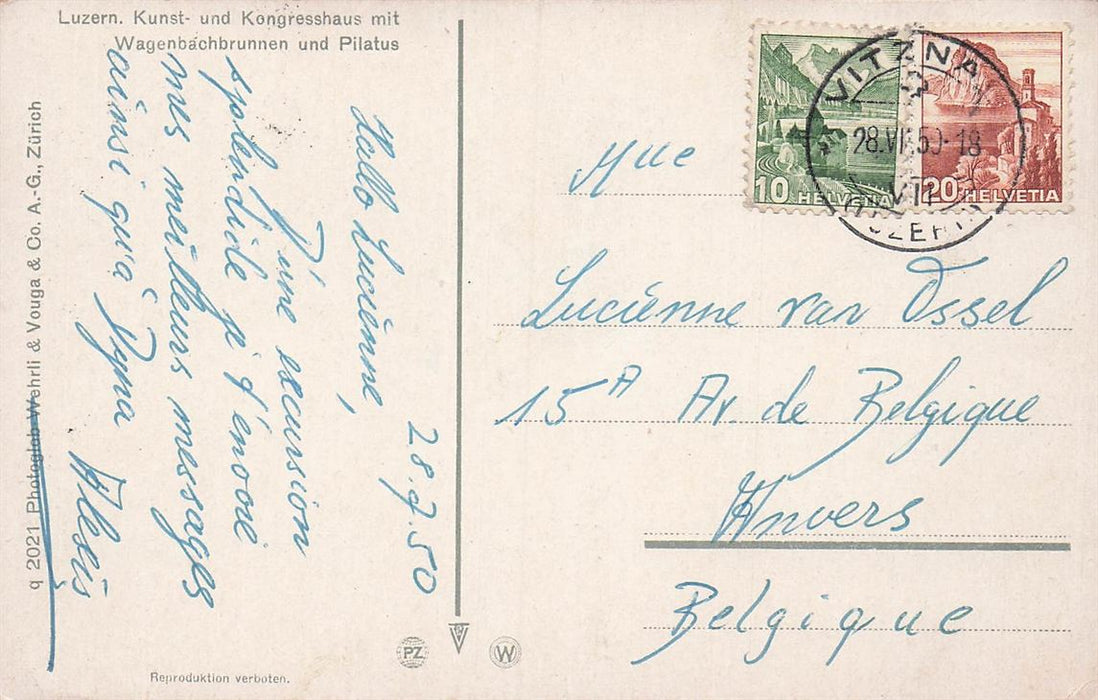 Luzern. Kunst- und Kongresshaus mit
Wagenbachbrunnen und Pilatus
28.7.50
Hallo Lucienne,
D'une excursion
splendide je t'envoie
mes meilleurs messages
ainsi qu'à
Alexis
q 2021 Photoglob-Wehrli & Vouga & Co. A.-G., Zürich
Reproduktion verboten.
PZ
W
10 HELVETIA
20 HELVETIA
VITZNAU
28.VII.50-18
LUZERN
Mlle
Lucienne van Ossel
15A Av. de Belgique
Anvers
Belgique